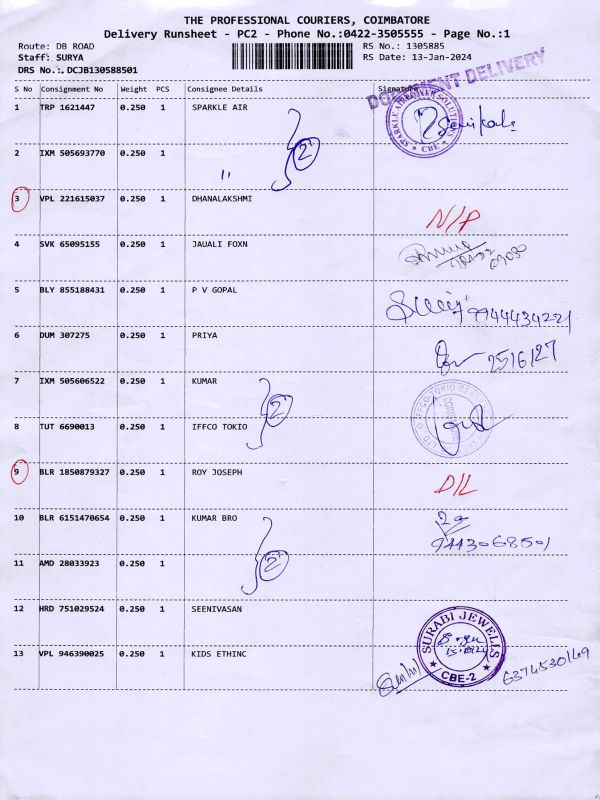 THE PROFESSIONAL COURIERS, COIMBATORE
Delivery Runsheet - PC2 - Phone No.:0422-3505555 - Page No.:1
Route: DB ROAD RS No.: 1305885
Staff: SURYA RS Date: 13-Jan-2024
DRS No.:.DCJB130588501
DOCUMENT DELIVERY
S No Consignment No Weight PCS Consignee Details Signature
1 TRP 1621447 0.250 1 SPARKLE AIR
2 IXM 505693770 0.250 1 " 2
3 VPL 221615037 0.250 1 DHANALAKSHMI N/P
4 SVK 65095155 0.250 1 JAUALI FOXN
5 BLY 855188431 0.250 1 P V GOPAL 9944434221
6 DUM 307275 0.250 1 PRIYA 2516127
7 IXM 505606522 0.250 1 KUMAR 2
8 TUT 6690013 0.250 1 IFFCO TOKIO
9 BLR 1850879327 0.250 1 ROY JOSEPH D/L
10 BLR 6151470654 0.250 1 KUMAR BRO 9443068501
11 AMD 28033923 0.250 1 2
12 HRD 751029524 0.250 1 SEENIVASAN
SURABI JEWELLS
CBE-2
13 VPL 946390025 0.250 1 KIDS ETHINC 6374530169